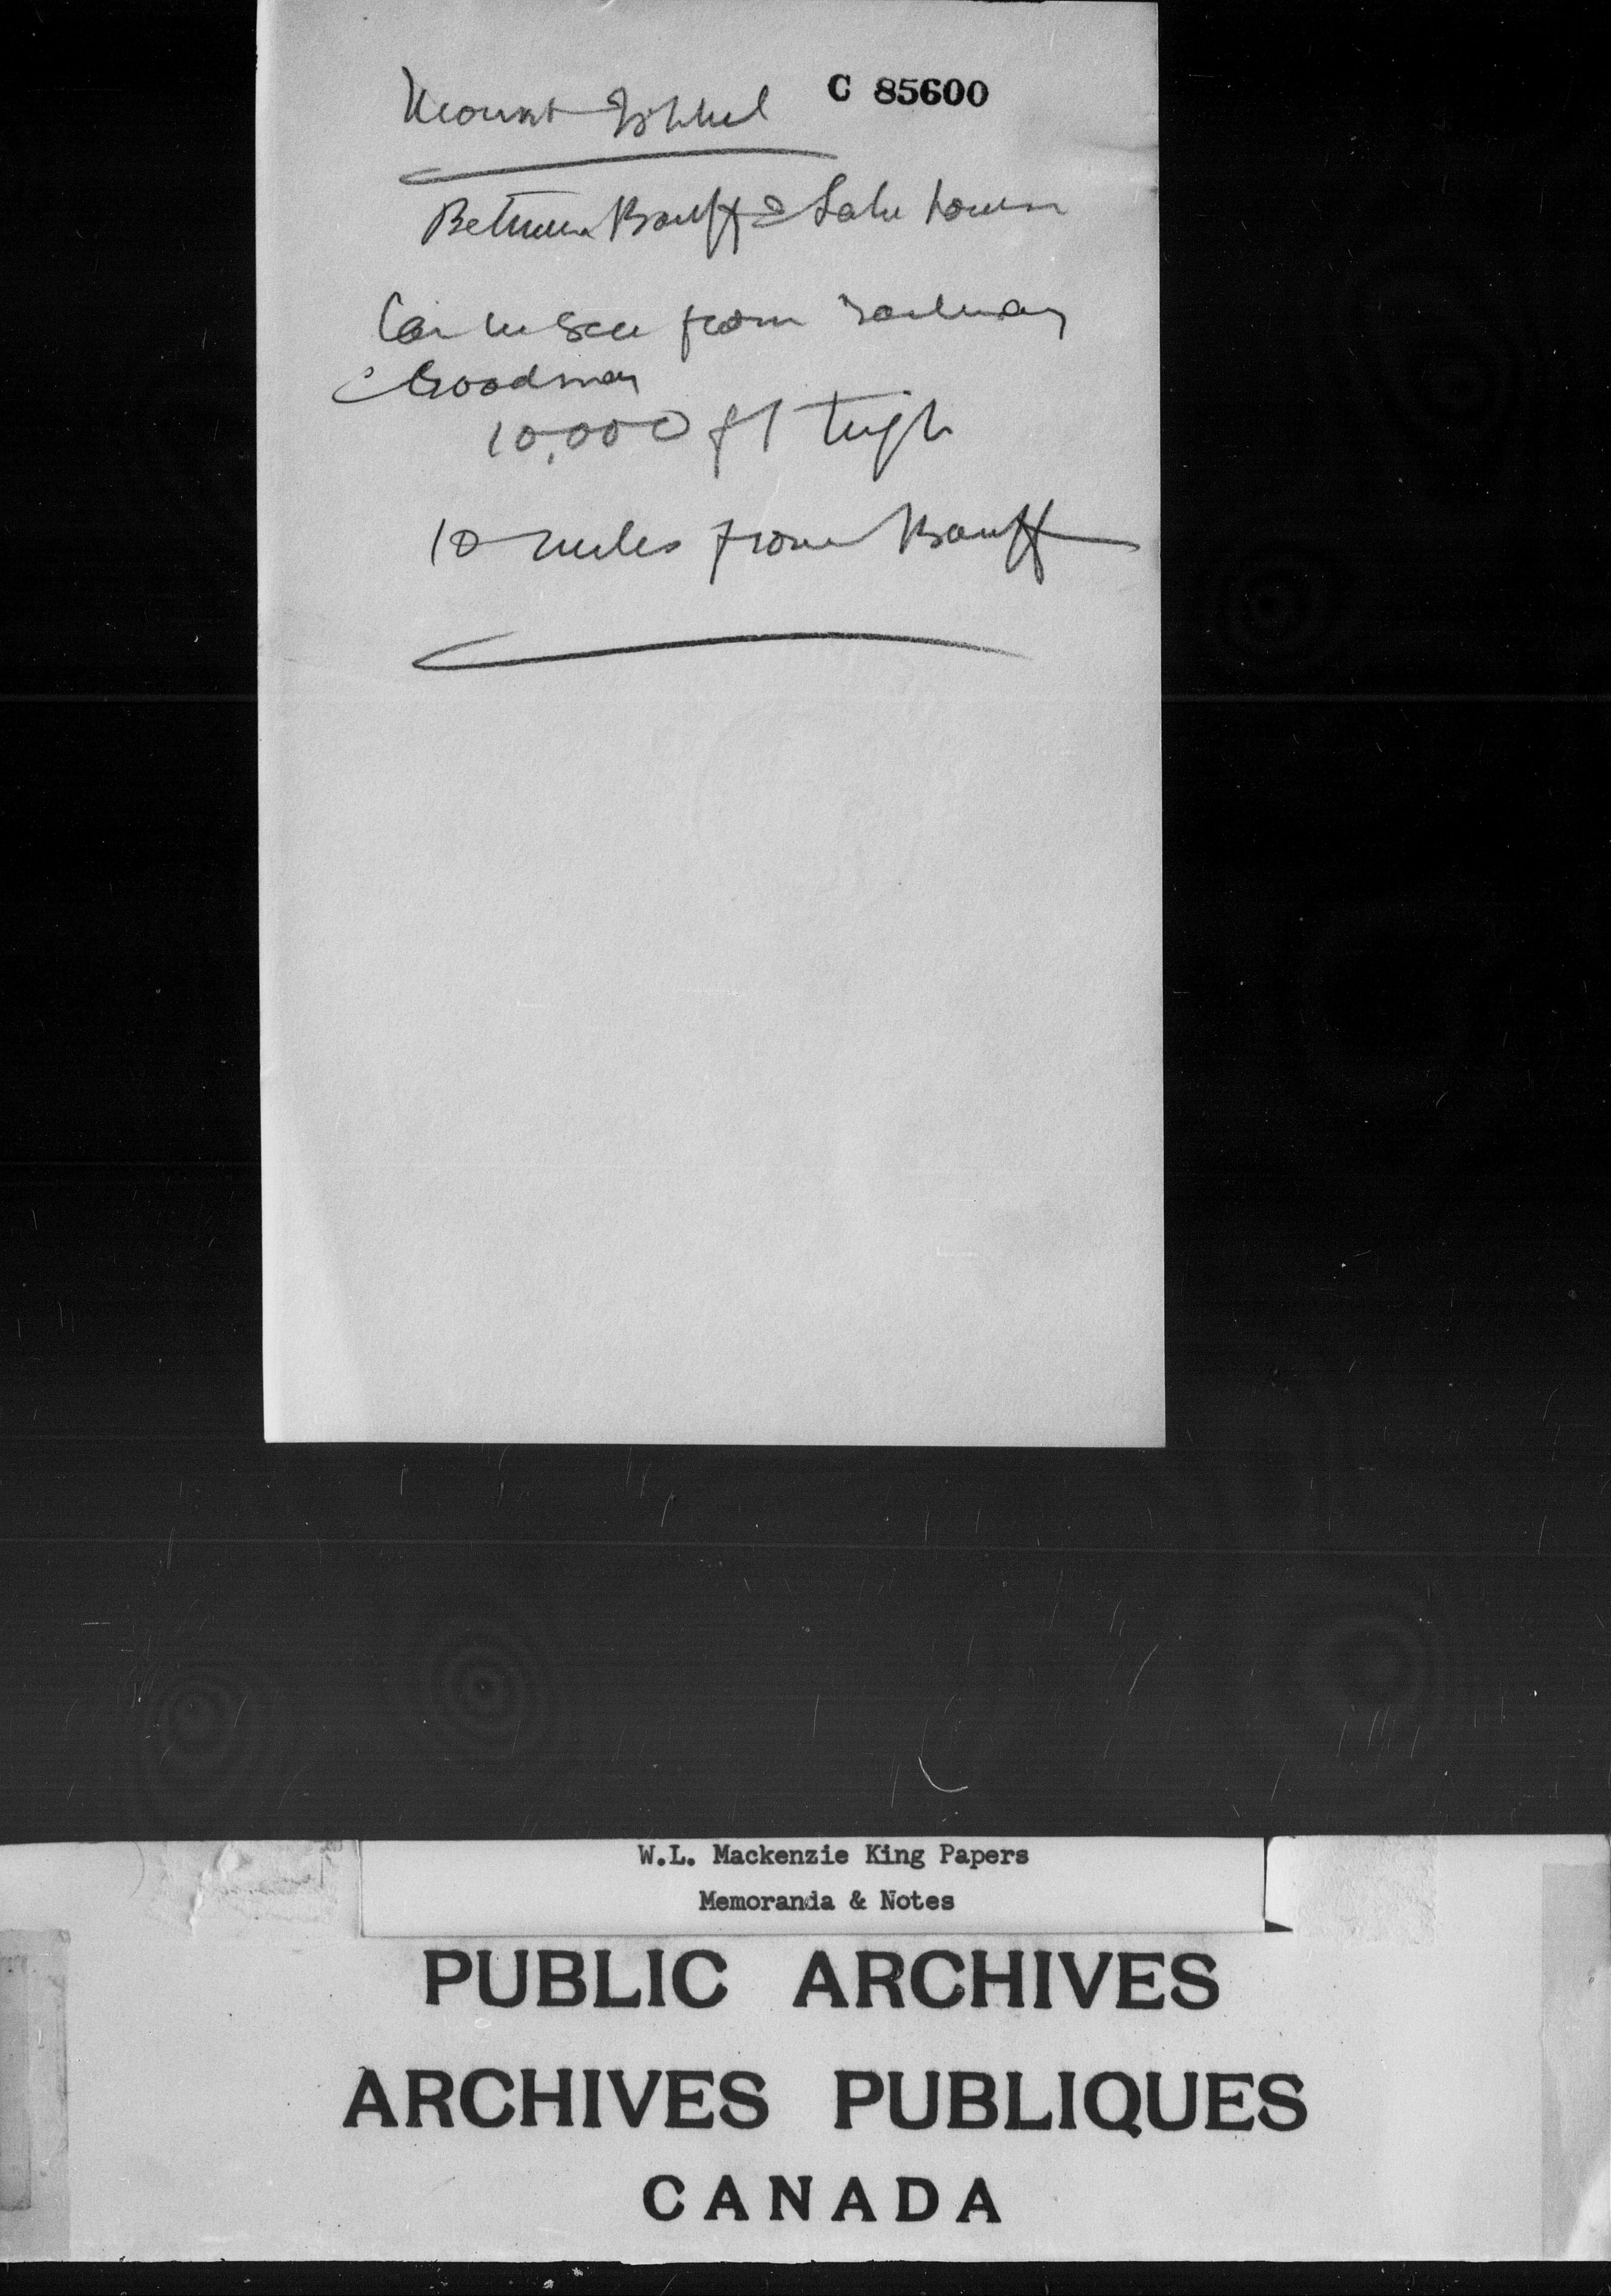 Mount Ishbel C 85600
Between Banff & Lake Louise
Can be seen from railway
& broadway
10,000 ft high
10 miles from Banff
W.L. Mackenzie King Papers
Memoranda & Notes
PUBLIC ARCHIVES
ARCHIVES PUBLIQUES
CANADA